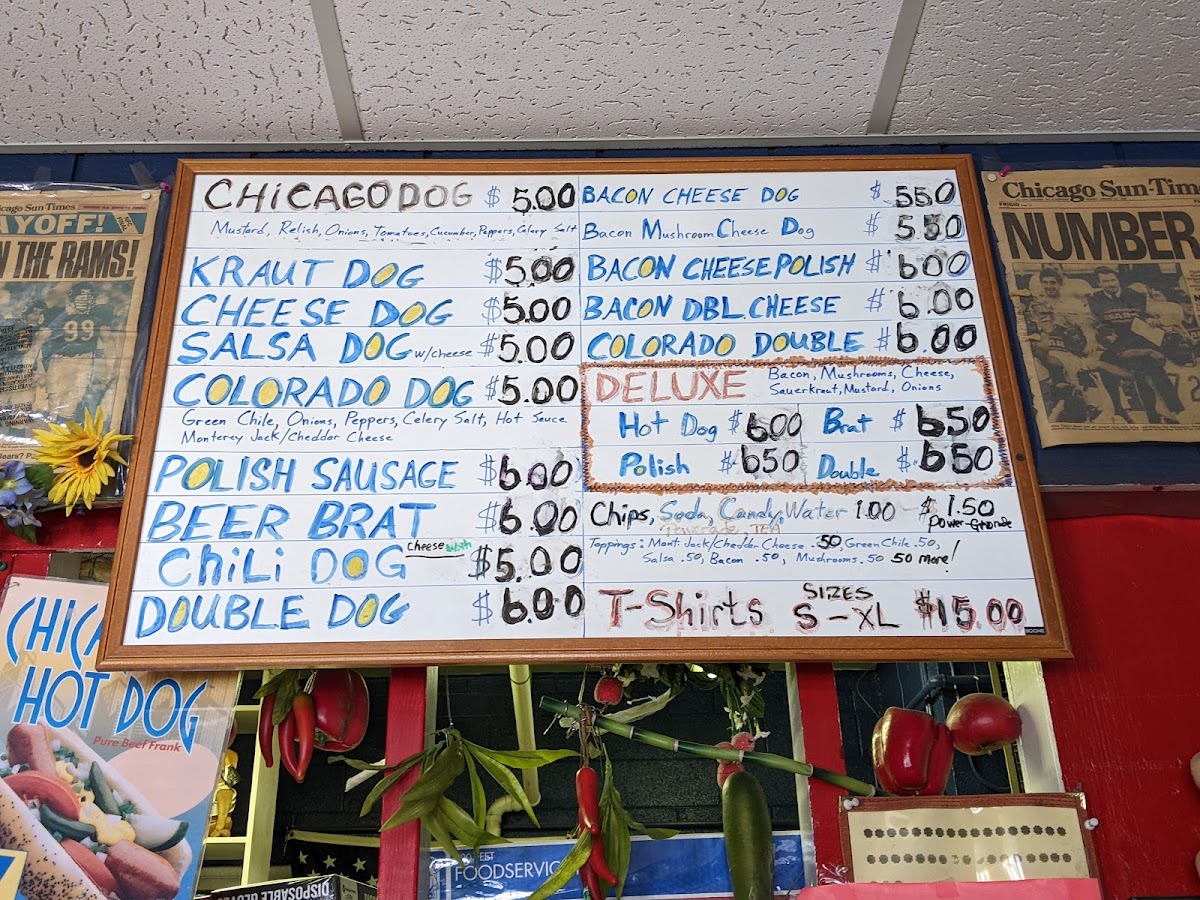 CHiCAGO DOG $ 5.00
Mustard, Relish, Onions, Tomatoes, Cucumber, Peppers, Celery Salt
KRAUT DOG $5.00
CHEESE DOG $5.00
SALSA DOG w/cheese $5.00
COLORADO DOG $5.00
Green Chile, Onions, Peppers, Celery Salt, Hot Sauce
Monterey Jack/Cheddar Cheese
POLISH SAUSAGE $6.00
BEER BRAT $6.00
CHiLi DOG cheese with $5.00
DOUBLE DOG $ 6.00
BACON CHEESE DOG $ 550
Bacon Mushroom Cheese Dog $ 550
BACON CHEESE POLISH $ 600
BACON DBL. CHEESE $ 6.00
COLORADO DOUBLE $ 6.00
DELUXE Bacon, Mushrooms, Cheese,
Sauerkraut, Mustard, Onions
Hot Dog $600 Brat $ 650
Polish $650 Double $ 650
Chips, Soda, Candy, Water 1.00 $ 1.50
Powerade, TEA
Toppings: Mont. Jack/Cheddar Cheese .50, Green Chile .50,
Salsa .50, Bacon .50, Mushrooms .50 50 more!
T-Shirts SIZES S-XL $15.00
BOONE
Chicago Sun-Times
AYOFF!
N THE RAMS!
99
Chicago Sun-Tim
NUMBER
CHIC
HOT DOG
Pure Beef Frank
FOODSERVIC
DISPOSABLE GLOVES